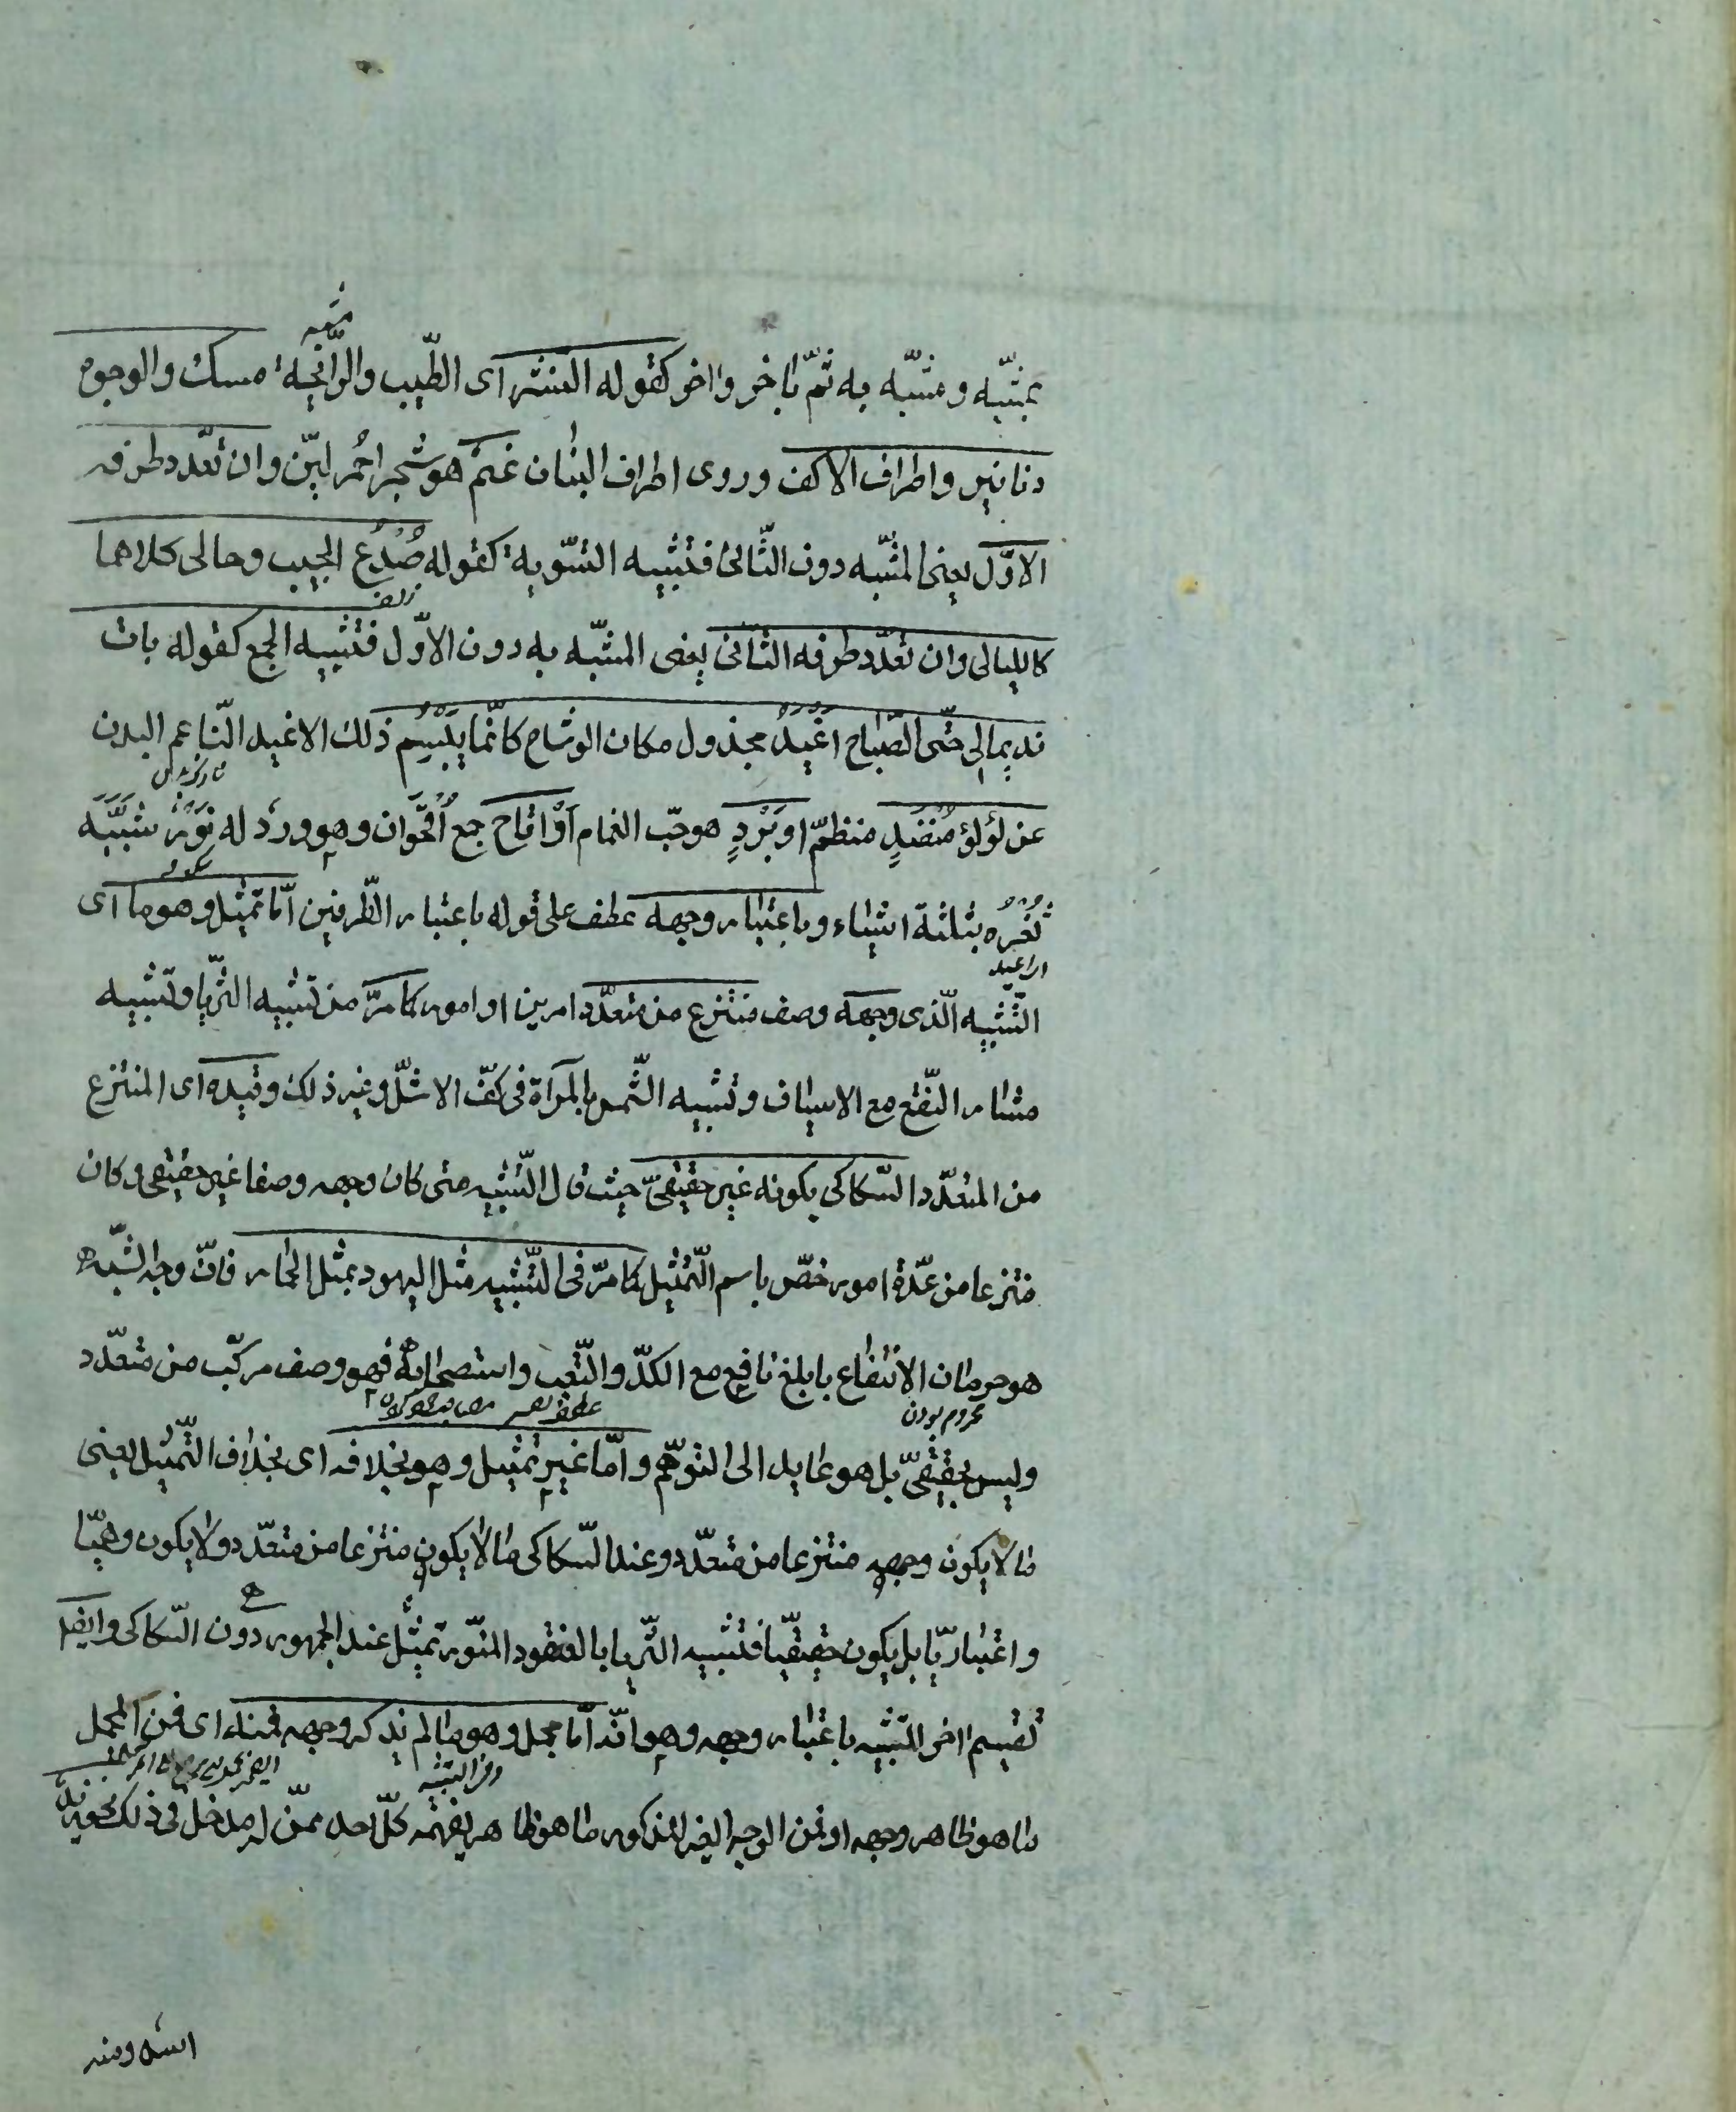 مشبه
بمشبّه ومشبّه به ثمّ باخر واخر كقوله النشر اى الطّيب والرّائحة مسك والوجوه
دنانير واطراف الاكف وروى اطراف البنان عنم هو شجر احمر ليّن وان تعدّد طرفه
الاوّل يعنى المشبّه دون الثّانى فتشبيه التسّوية كقوله صُدغُ الحبيب وحالى كلاهما
زلف
كالليالى وان تعدّد طرفه الثّانى يعنى المشبّه به دون الاوّل فتشبيه الجمع كقوله بات
نديما لى حتّى الصّباح اغيد مجدول مكان الوشاح كانّما يبسم ذلك الاغيد النّاعم البدن
عن لؤلؤ منضدٍ منظمّ او بَرَدٍ هو حبّ الغمام اَوْ اقاح جمع اُقحوان وهو ورد له نور شبّه
ثغره بثلثة اشياء وباعتبار وجهه عطف على قوله باعتبار الطّرفين امّا تمثيل وهو ما اى
اى اغيد
التّشبيه الّذى وجهه وصف منتزع من متعدّد امرين او امور كما مرّ من تشبيه الثريّا وتشبيه
مثار النّقع مع الاسياف وتشبيه الشّمس بالمرآة فى كفّ الاشلّ وغير ذلك وقيده اى المنتزع
من المتعدّد السّكاكى بكونه غير حقيقىّ حيث قال التّشبيه متى كان وجهه وصفا غير حقيقى وكان
منتزعا من عدّة امور خصّ باسم التّمثيل كما مرّ فى التّشبيه مثل اليهود بمثل الحمار فانّ وجه الشّبه
هو حرمان الانتفاع بابلغ نافع مع الكدّ والتّعب واستصحابه فهو وصف مركّب من متعدّد
محروم بودن
وليس بحقيقىّ بل هو عايد الى التوهّم وامّا غير تمثيل وهو بخلافه اى بخلاف التّمثيل يعنى
ما لا يكون وجهه منتزعا من متعدّد وعند السّكاكى ما لا يكون منتزعا من متعدّد ولا يكون وهميّا
واعتباريّا بل يكون حقيقيّا فتشبيه الثّريا بالعنقود المنّور تمثيل عند الجمهور دون السّكاكى وايضا
تقسيم اخر للتّشبيه باعتبار وجهه وهو انّه امّا مجمل وهو ما لم يذكر وجهه فمنه اى فمن المجمل
ما هو ظاهر وجهه او فمن الوجه الغير المذكور ما هو ظاهر يفهمه كلّ احد ممّن له مدخل فى ذلك نحو زيد
اسد ومنه